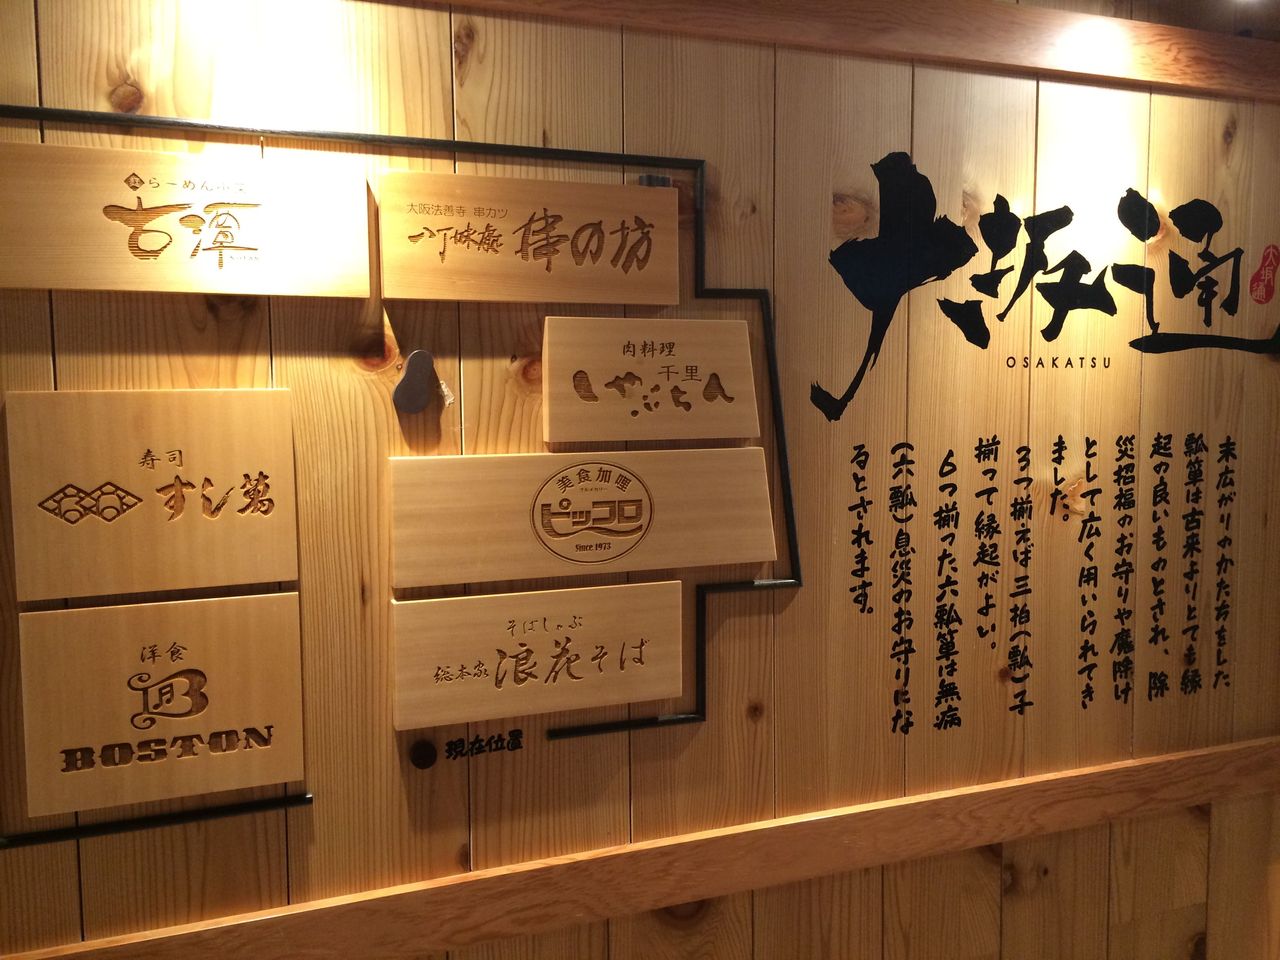 らーめん小室
古潭
KOTAN
大阪法善寺 串カツ
八丁味處 串の坊
肉料理
千里
しゃぶちん
寿司
すし萬
美食加哩
グルメカリー
ピッコロ
Since 1973
洋食
B
BOSTON
そばしゃぶ
総本家 浪花そば
現在位置
大阪通
大坂通
OSAKATSU
末広がりのかたちをした
瓢箪は古来よりとても縁
起の良いものとされ、除
災招福のお守りや魔除け
として広く用いられてき
ました。
3つ揃えば三拍(瓢)子
揃って縁起がよい。
6つ揃った六瓢箪は無病
(六瓢)息災のお守りにな
るとされます。